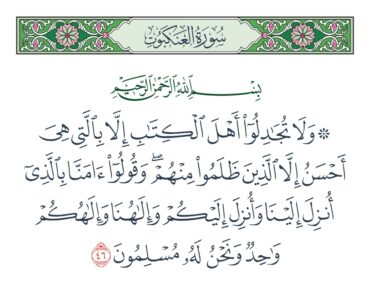 سُورَةُ العَنكَبُوتِ
بِسْمِ ٱللَّهِ ٱلرَّحْمَٰنِ ٱلرَّحِيمِ
۞ وَلَا تُجَٰدِلُوٓا۟ أَهْلَ ٱلْكِتَٰبِ إِلَّا بِٱلَّتِى هِىَ
أَحْسَنُ إِلَّا ٱلَّذِينَ ظَلَمُوا۟ مِنْهُمْ ۖ وَقُولُوٓا۟ ءَامَنَّا بِٱلَّذِىٓ
أُنزِلَ إِلَيْنَا وَأُنزِلَ إِلَيْكُمْ وَإِلَٰهُنَا وَإِلَٰهُكُمْ
وَٰحِدٌ وَنَحْنُ لَهُۥ مُسْلِمُونَ ٤٦